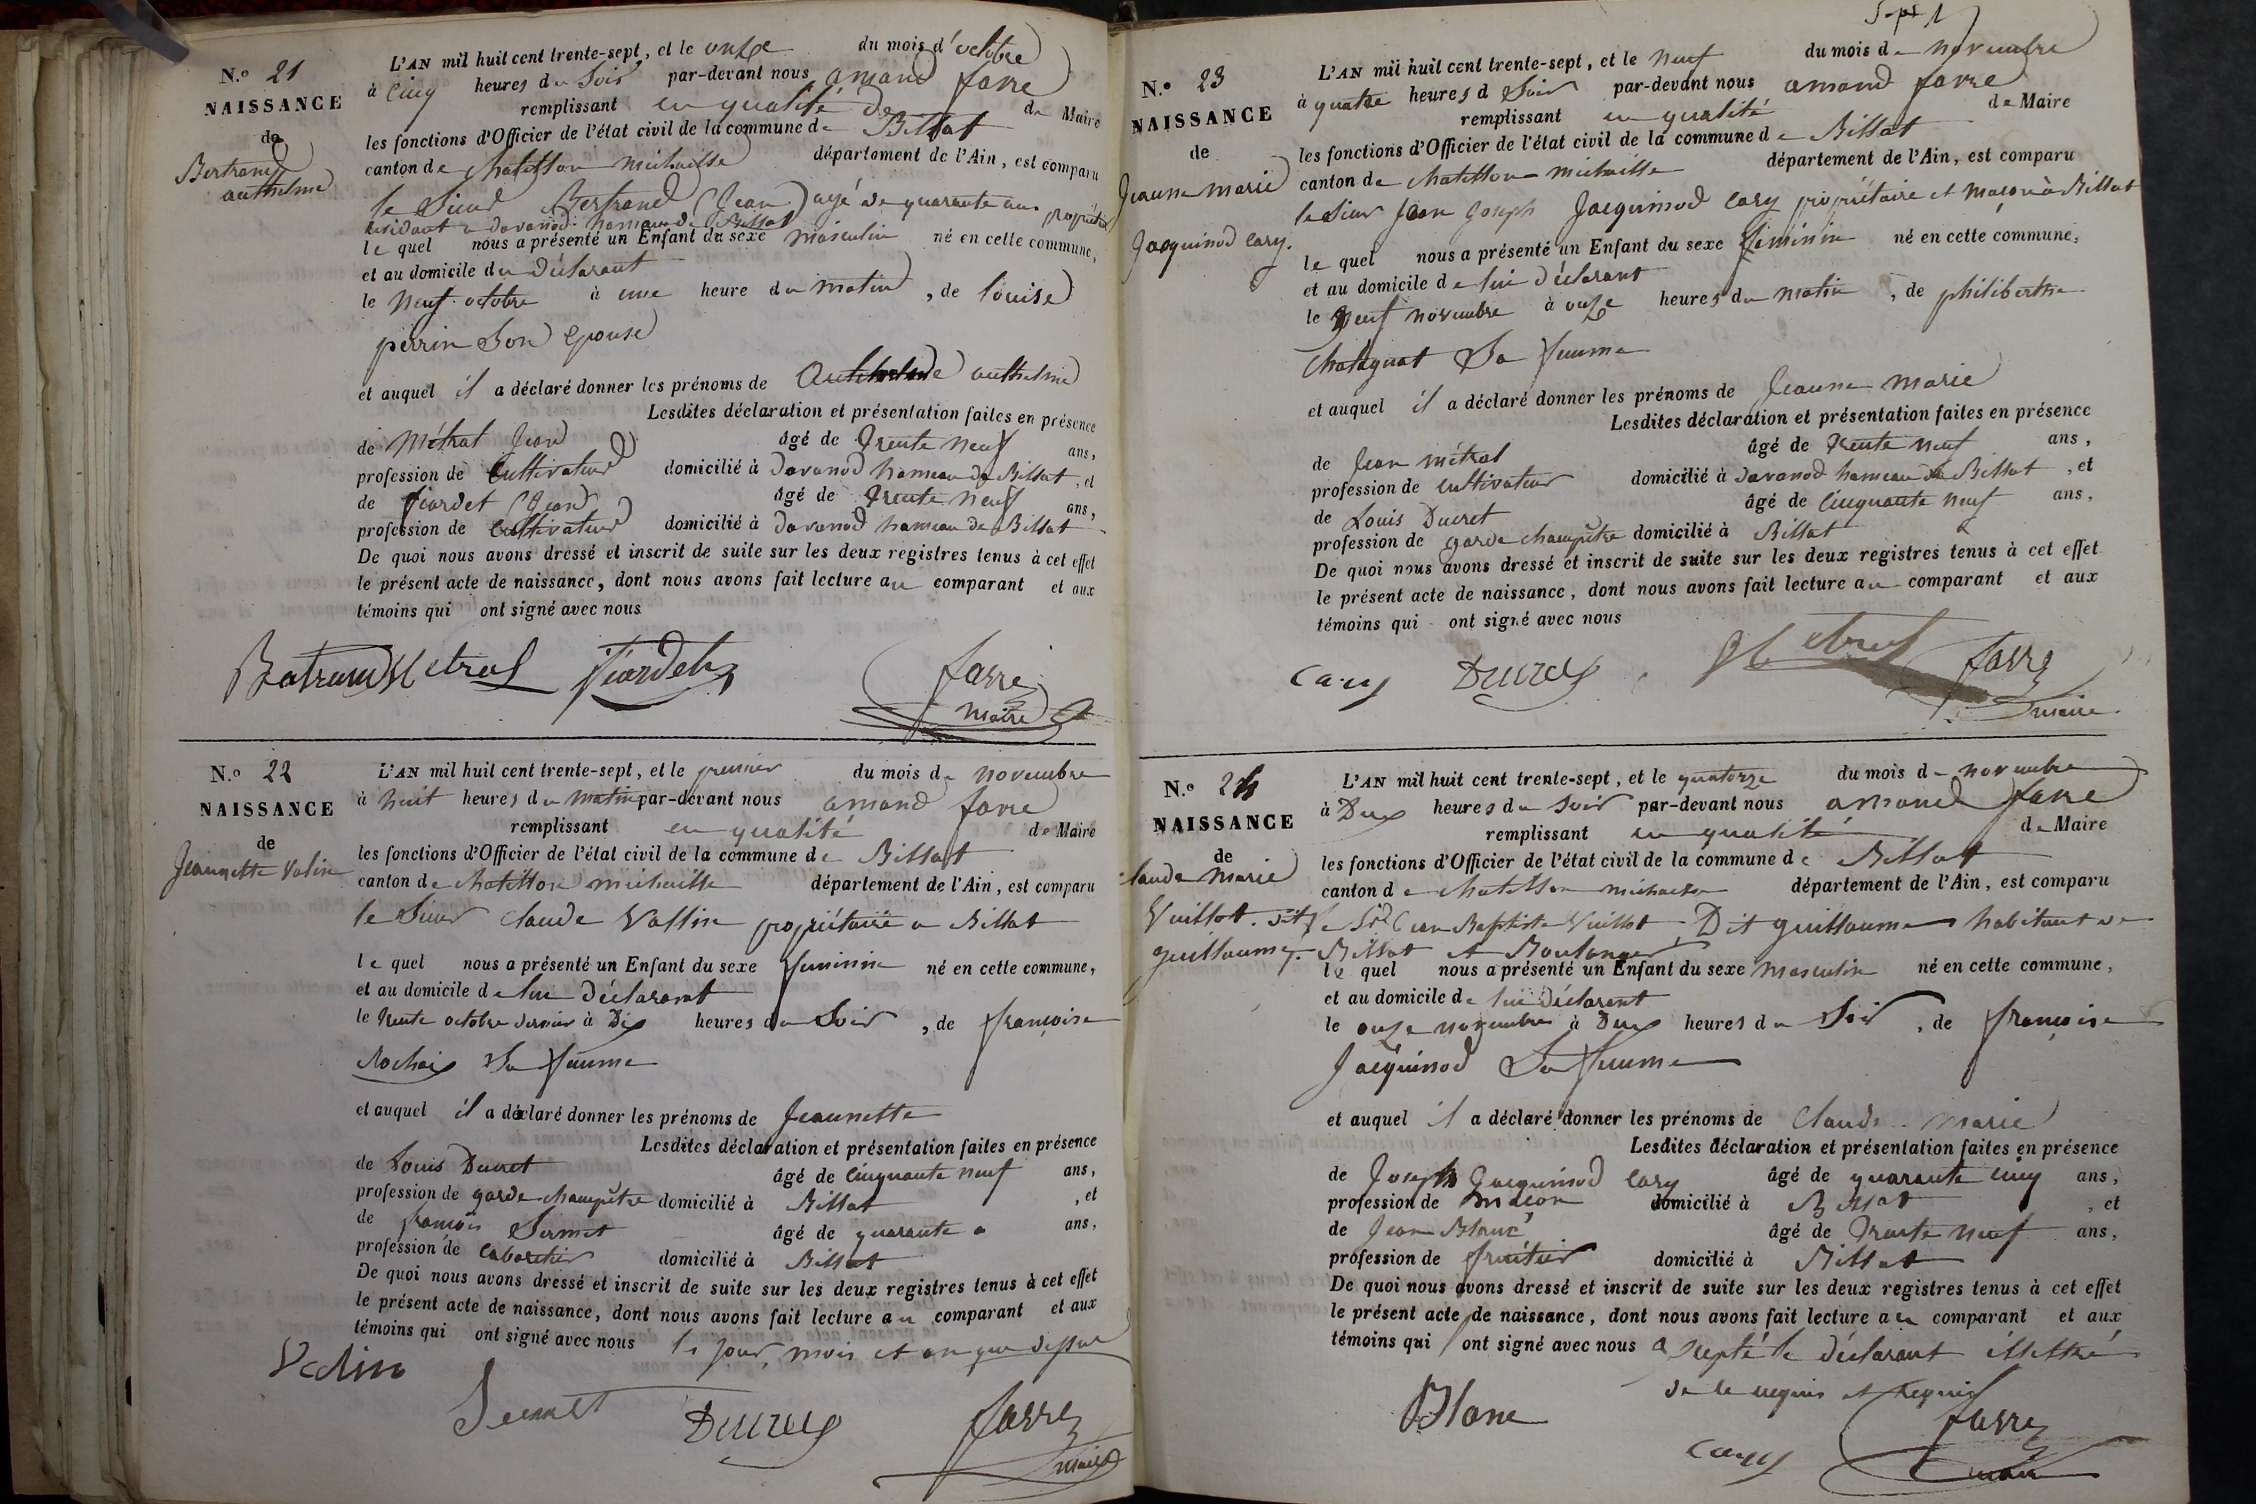 N.º 21
NAISSANCE
de
Bertrand
anthelme
L'AN mil huit cent trente-sept, et le onze du mois d'octobre
à cinq heures du soir par-devant nous amand favre
remplissant en qualité de de Maire
les fonctions d'Officier de l'état civil de la commune de Billat
canton de chatillon michaille département de l'Ain, est comparu
le Sieur Bertrand (Jean) agé de quarante ans propriétaire
résidant a davanod hameau de Billat
le quel nous a présenté un Enfant du sexe masculin né en cette commune,
et au domicile du déclarant
le neuf octobre à une heure du matin, de louise
perrin son epouse
et auquel il a déclaré donner les prénoms de anthelme
Lesdites déclaration et présentation faites en présence
de Métral Jean âgé de trente neuf ans,
profession de cultivateur domicilié à davanod hameau de Billat, et
de fiardet (Jean) âgé de trente neuf ans,
profession de cultivateur domicilié à davanod hameau de Billat
De quoi nous avons dressé et inscrit de suite sur les deux registres tenus à cet effet
le présent acte de naissance, dont nous avons fait lecture au comparant et aux
témoins qui ont signé avec nous
Bertrand Metral fiardet favre
maire
N.º 22
NAISSANCE
de
Jeannette Valin
L'AN mil huit cent trente-sept, et le premier du mois de novembre
à huit heures du matin par-devant nous amand favre
remplissant en qualité de Maire
les fonctions d'Officier de l'état civil de la commune de Billat
canton de chatillon michaille département de l'Ain, est comparu
le Sieur claude Vallin propriétaire a Billat
le quel nous a présenté un Enfant du sexe feminin né en cette commune,
et au domicile de lui déclarant
le trente octobre dernier à Dix heures du Soir, de françoise
Rochaix Sa femme
et auquel il a déclaré donner les prénoms de Jeannette
Lesdites déclaration et présentation faites en présence
de Louis Ducret âgé de cinquante neuf ans,
profession de garde champêtre domicilié à Billat, et
de françois Sermet âgé de quarante ans,
profession de cabaretier domicilié à Billat
De quoi nous avons dressé et inscrit de suite sur les deux registres tenus à cet effet
le présent acte de naissance, dont nous avons fait lecture au comparant et aux
témoins qui ont signé avec nous les jour, mois et an que dessus
Valin
Sermet Ducret favre
maire
N.º 23
NAISSANCE
de
Jeanne marie
Jacquinod cary.
L'AN mil huit cent trente-sept, et le neuf du mois de novembre
à quatre heures d Soir par-devant nous amand favre
remplissant en qualité de Maire
les fonctions d'Officier de l'état civil de la commune de Billat
canton de chatillon michaille département de l'Ain, est comparu
le Sieur Jean Joseph Jacquinod cary propriétaire et maçon à Billat
le quel nous a présenté un Enfant du sexe féminin né en cette commune,
et au domicile de lui déclarant
le neuf novembre à onze heures du matin, de philiberthe
Chatagnat Sa femme
et auquel il a déclaré donner les prénoms de Jeanne marie
Lesdites déclaration et présentation faites en présence
de Jean métral âgé de trente neuf ans,
profession de cultivateur domicilié à davanod hameau de Billat, et
de Louis Ducret âgé de cinquante neuf ans,
profession de garde champêtre domicilié à Billat
De quoi nous avons dressé et inscrit de suite sur les deux registres tenus à cet effet
le présent acte de naissance, dont nous avons fait lecture au comparant et aux
témoins qui ont signé avec nous
Cary Ducret Metral favre
maire
N.º 24
NAISSANCE
de
claude marie
Vuillot. dit
guillaume.
L'AN mil huit cent trente-sept, et le quatorze du mois de novembre
à Deux heures du soir par-devant nous amand favre
remplissant en qualité de Maire
les fonctions d'Officier de l'état civil de la commune de Billat
canton de chatillon michaille département de l'Ain, est comparu
le Sr Jean Baptiste Vuillot Dit guillaume habitant de
Billat et Boulanger
le quel nous a présenté un Enfant du sexe masculin né en cette commune,
et au domicile de lui déclarent
le onze novembre à Deux heures du Soir, de françoise
Jacquinod Sa femme
et auquel il a déclaré donner les prénoms de claude marie
Lesdites déclaration et présentation faites en présence
de Joseph Jacquinod cary âgé de quarante cinq ans,
profession de maçon domicilié à Billat, et
de Jean Blanc âgé de trente neuf ans,
profession de fruitier domicilié à Billat
De quoi nous avons dressé et inscrit de suite sur les deux registres tenus à cet effet
le présent acte de naissance, dont nous avons fait lecture au comparant et aux
témoins qui ont signé avec nous le déclarant illettré
de ce enquis et requis
Blanc cary favre
maire